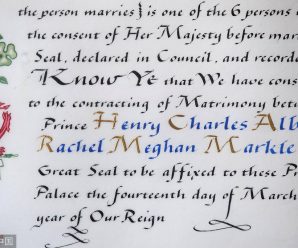 the person marries} is one of the 6 persons
the consent of Her Majesty before mar
Seal, declared in Council, and recorde
Know Ye that We have cons
to the contracting of Matrimony bet
Prince Henry Charles Alb
Rachel Meghan Markle
Great Seal to be affixed to these Pr
Palace the fourteenth day of March
year of Our Reign